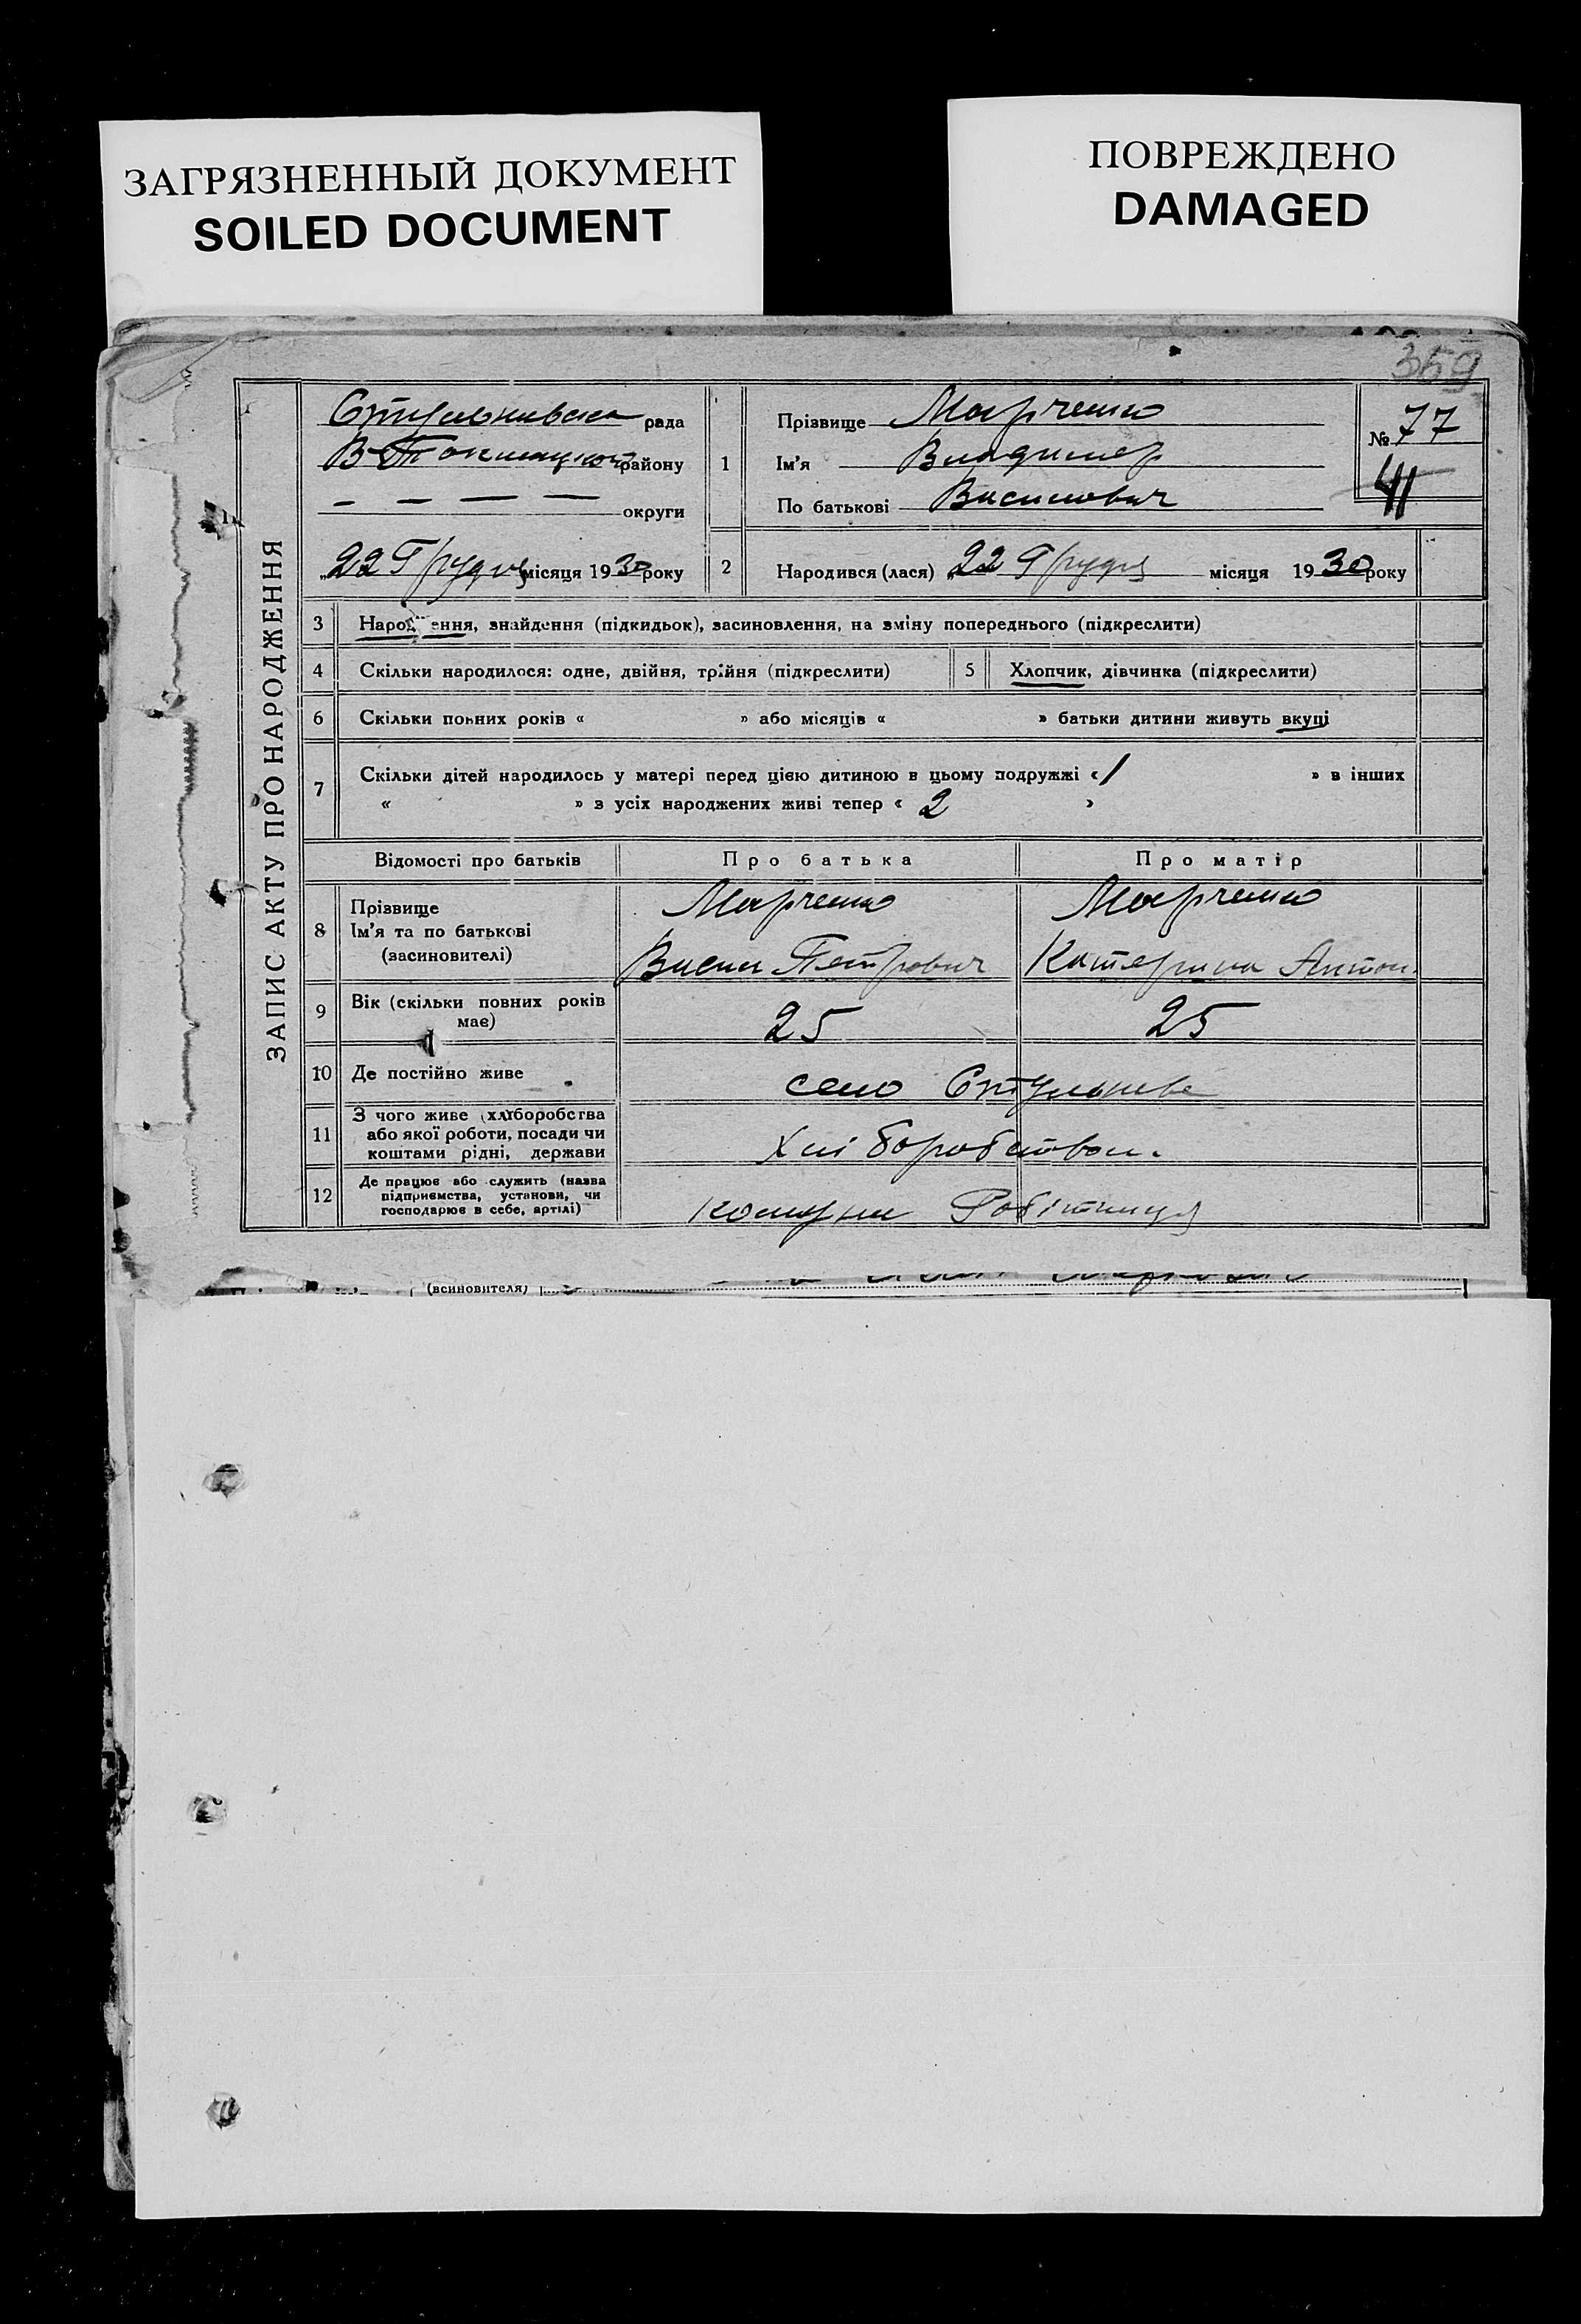 ЗАГРЯЗНЕННЫЙ ДОКУМЕНТ
SOILED DOCUMENT
ПОВРЕЖДЕНО
DAMAGED
359
ЗАПИС АКТУ ПРО НАРОДЖЕННЯ
Стульнивська рада
В-Токмацького району
— — — — округи
„22 Грудня місяця 1930 року
1
Прізвище Марченко
Ім'я Владимер
По батькові Василович
№ 77
41
2 Народився (лася) „22 Грудня місяця 1930 року
3 Народження, знайдення (підкидьок), засиновлення, на зміну попереднього (підкреслити)
4 Скільки народилося: одне, двійня, трійня (підкреслити) 5 Хлопчик, дівчинка (підкреслити)
6 Скільки повних років « » або місяців « » батьки дитини живуть вкупі
7 Скільки дітей народилось у матері перед цією дитиною в цьому подружжі « 1 » в інших
« » з усіх народжених живі тепер « 2 »
Відомості про батьків Про батька Про матір
8 Прізвище
Ім'я та по батькові
(засиновителі)
Марченко
Васил Петрович
Марченко
Катерина Антон.
9 Вік (скільки повних років
має)
25 25
10 Де постійно живе село Стульневе
11 З чого живе (хліборобства
або якої роботи, посади чи
коштами рідні, держави
Хліборобством.
12 Де працює або служить (назва
підприємства, установи, чи
господарює в себе, артілі)
комуни Робітниця
(всиновителя)